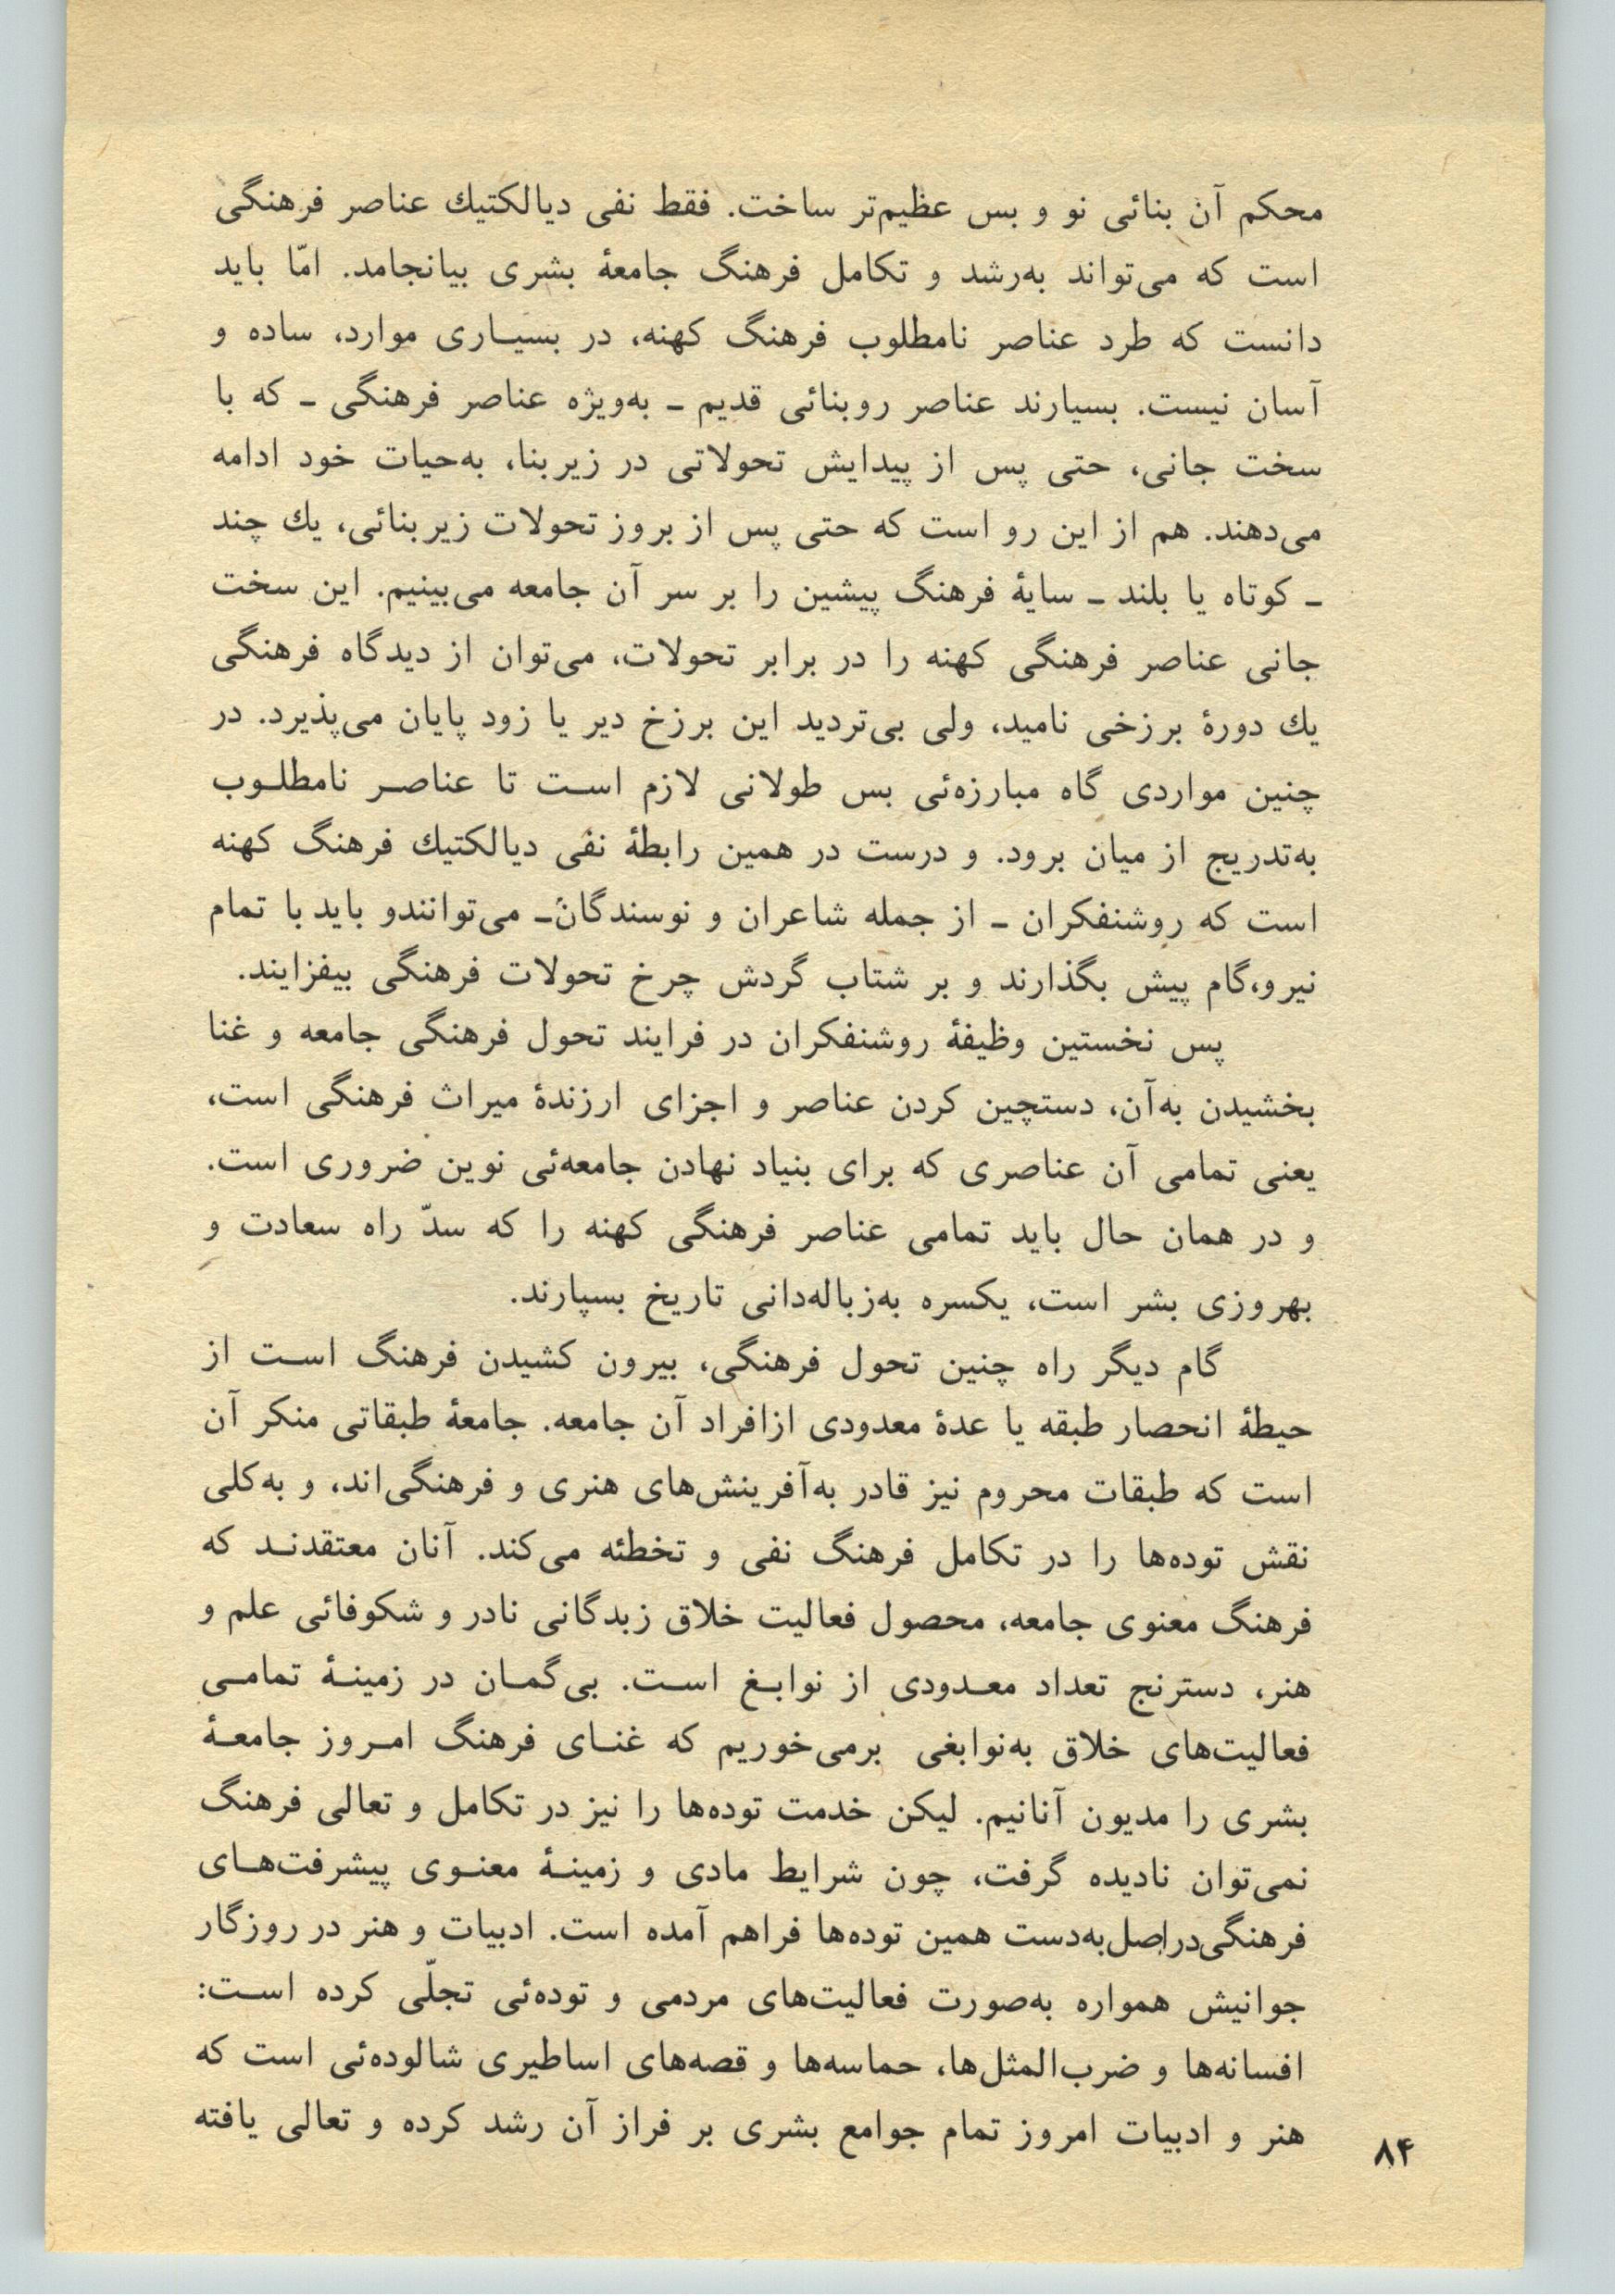 محکم آن بنائی نو و بس عظیم‌تر ساخت. فقط نفی دیالکتیك عناصر فرهنگی
است که می‌تواند به‌رشد و تکامل فرهنگ جامعهٔ بشری بیانجامد. امّا باید
دانست که طرد عناصر نامطلوب فرهنگ کهنه، در بسیـاری موارد، ساده و
آسان نیست. بسیارند عناصر روبنائی قدیم ـ به‌ویژه عناصر فرهنگی ـ که با
سخت جانی، حتی پس از پیدایش تحولاتی در زیربنا، به‌حیات خود ادامه
می‌دهند. هم از این رو است که حتی پس از بروز تحولات زیربنائی، یك چند
ـ کوتاه یا بلند ـ سایهٔ فرهنگ پیشین را بر سر آن جامعه می‌بینیم. این سخت
جانی عناصر فرهنگی کهنه را در برابر تحولات، می‌توان از دیدگاه فرهنگی
یك دورهٔ برزخی نامید، ولی بی‌تردید این برزخ دیر یا زود پایان می‌پذیرد. در
چنین مواردی گاه مبارزه‌ئی بس طولانی لازم اسـت تا عناصـر نامطلـوب
به‌تدریج از میان برود. و درست در همین رابطهٔ نفی دیالکتیك فرهنگ کهنه
است که روشنفکران ـ از جمله شاعران و نوسندگان‌ـ می‌توانندو باید با تمام
نیرو،گام پیش بگذارند و بر شتاب گردش چرخ تحولات فرهنگی بیفزایند.
پس نخستین وظیفهٔ روشنفکران در فرایند تحول فرهنگی جامعه و غنا
بخشیدن به‌آن، دستچین کردن عناصر و اجزای ارزندهٔ میراث فرهنگی است،
یعنی تمامی آن عناصری که برای بنیاد نهادن جامعه‌ئی نوین ضروری است.
و در همان حال باید تمامی عناصر فرهنگی کهنه را که سدّ راه سعادت و
بهروزی بشر است، یکسره به‌زباله‌دانی تاریخ بسپارند.
گام دیگر راه چنین تحول فرهنگی، بیرون کشیدن فرهنگ اسـت از
حیطهٔ انحصار طبقه یا عدهٔ معدودی ازافراد آن جامعه. جامعهٔ طبقاتی منکر آن
است که طبقات محروم نیز قادر به‌آفرینش‌های هنری و فرهنگی‌اند، و به‌کلی
نقش توده‌ها را در تکامل فرهنگ نفی و تخطئه می‌کند. آنان معتقدنـد که
فرهنگ معنوی جامعه، محصول فعالیت خلاق زبدگانی نادر و شکوفائی علم و
هنر، دسترنج تعداد معـدودی از نوابـغ اسـت. بی‌گمـان در زمینـهٔ تمامـی
فعالیت‌های خلاق به‌نوابغی برمی‌خوریم که غنـای فرهنگ امـروز جامعـهٔ
بشری را مدیون آنانیم. لیکن خدمت توده‌ها را نیز در تکامل و تعالی فرهنگ
نمی‌توان نادیده گرفت، چون شرایط مادی و زمینـهٔ معنـوی پیشرفت‌هـای
فرهنگی‌دراصل‌به‌دست همین توده‌ها فراهم آمده است. ادبیات و هنر در روزگار
جوانیش همواره به‌صورت فعالیت‌های مردمی و توده‌ئی تجلّی کرده اسـت:
افسانه‌ها و ضرب‌المثل‌ها، حماسه‌ها و قصه‌های اساطیری شالوده‌ئی است که
هنر و ادبیات امروز تمام جوامع بشری بر فراز آن رشد کرده و تعالی یافته
۸۴